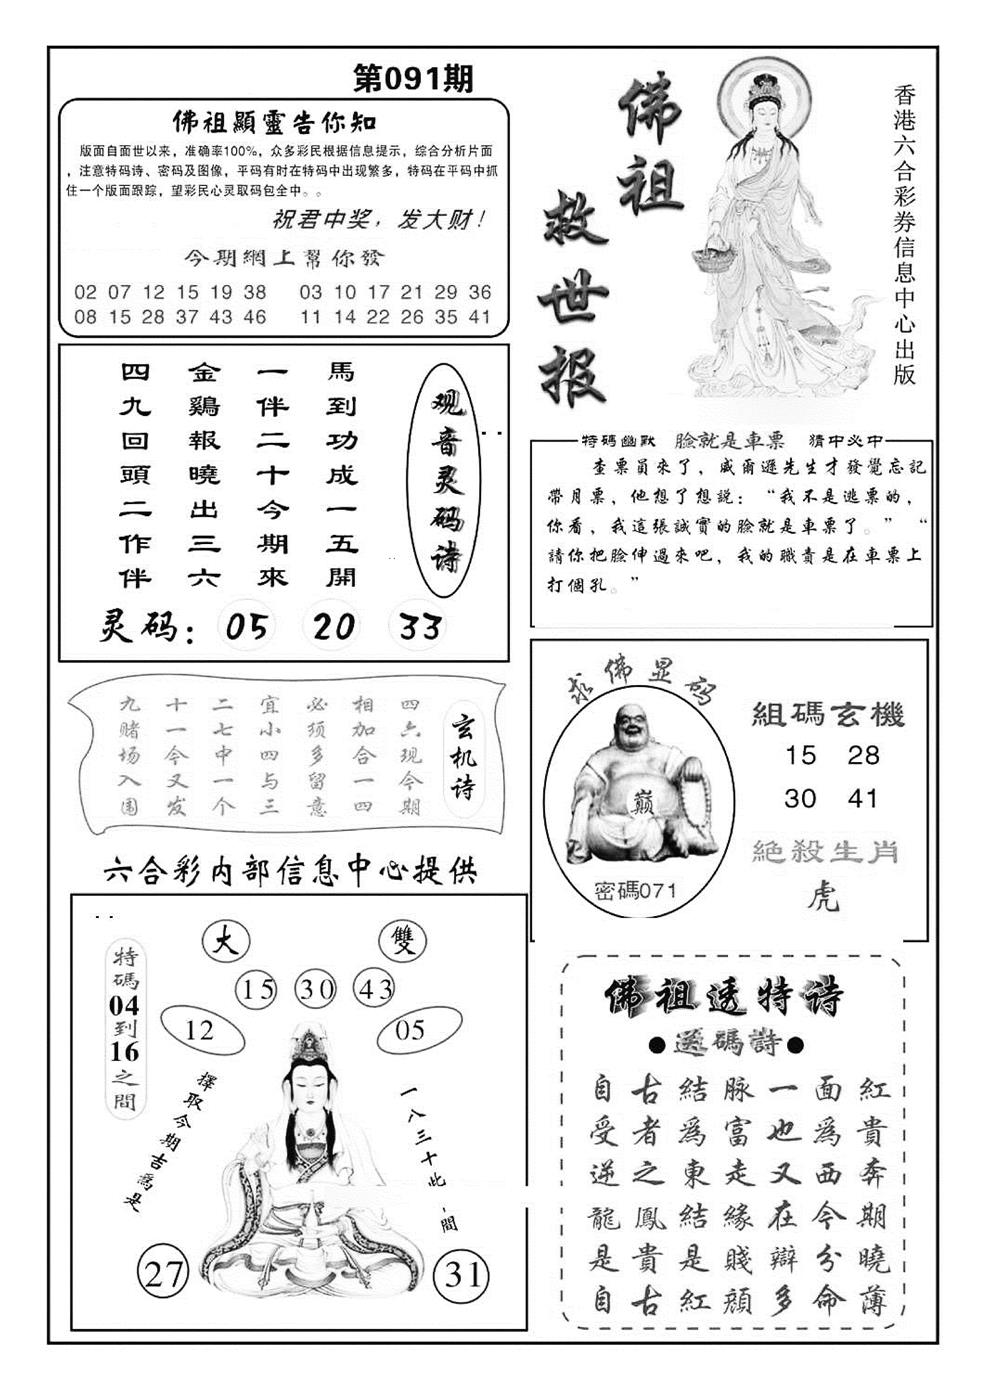 第091期
佛祖顯靈告你知
版面自面世以来，准确率100%，众多彩民根据信息提示，综合分析片面
，注意特码诗、密码及图像，平码有时在特码中出现繁多，特码在平码中抓
住一个版面跟踪，望彩民心灵取码包全中。。
祝君中奖，发大财！
今期網上幫你發
02 07 12 15 19 38 03 10 17 21 29 36
08 15 28 37 43 46 11 14 22 26 35 41
佛祖
救世报
香港六合彩券信息中心出版
观音灵码诗
馬到功成一五開
一伴二十今期來
金鷄報曉出三六
四九回頭二作伴
灵码：05 20 33
特碼幽默 臉就是車票 猜中必中
查票員來了，威爾遜先生才發覺忘記
帶月票，他想了想説：“我不是逃票的，
你看，我這張誠實的臉就是車票了。” “
請你把臉伸過來吧，我的職責是在車票上
打個孔。”
玄机诗
四六现今期
相加合一四
必须多留意
宜小四与三
二七中一个
十一今又发
九赌场入围
求佛显码
巅
密碼071
組碼玄機
15 28
30 41
絕殺生肖
虎
六合彩内部信息中心提供
大
雙
15 30 43
12
05
特碼04到16之間
擇取今期吉爲是
一八三十此間
27
31
佛祖透特诗
●送碼詩●
自古結脉一面紅
受者爲富也爲貴
逆之東走又西奔
龍鳳結緣在今期
是貴是賤辯分曉
自古紅顔多命薄